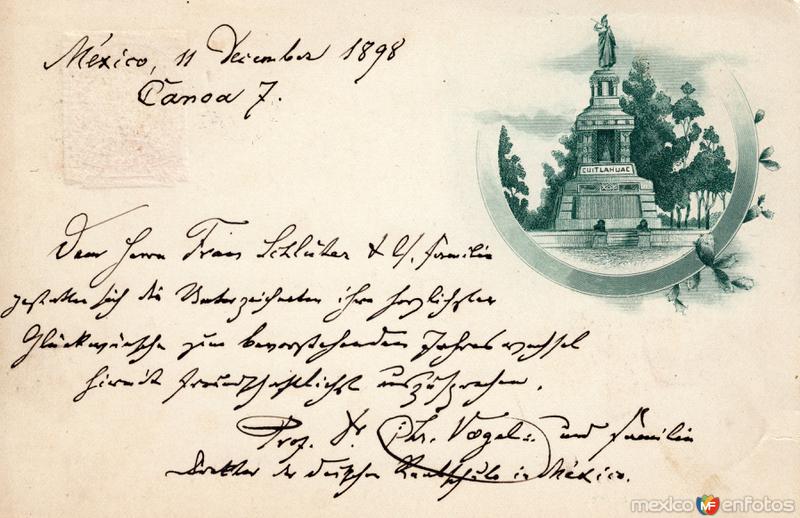 México, 11 December 1898
Canoa 7.
CUITLAHUAC
Dem Herrn Franz Schlüter & Familie
gestatten sich die Unterzeichneten ihre herzlichsten
Glückwünsche zum bevorstehenden Jahreswechsel
hiermit freundschaftlichst auszusprechen.
Prof. Dr. Chr. Vogel und Familie
Direktor der deutschen Realschule in México.
mexico MF enfotos